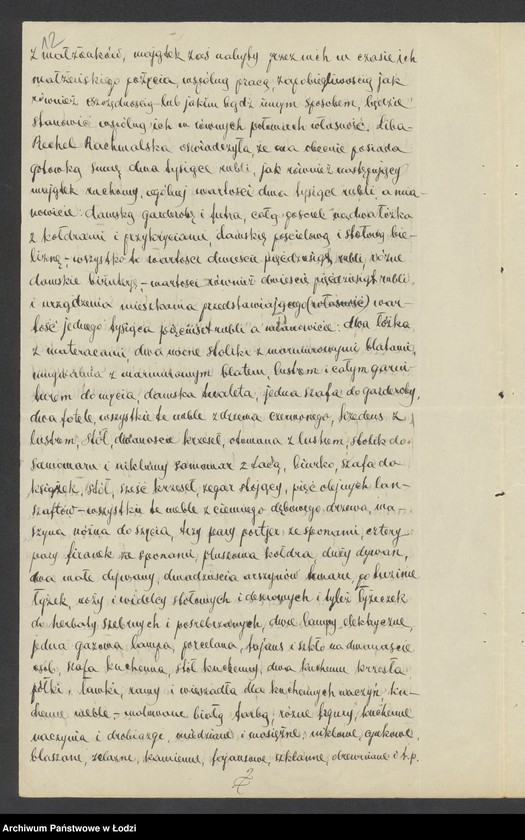 12
z małżonków, majątek zaś nabyty przez nich w czasie ich
małżeńskiego pożycia, wspólną pracą, zapobiegliwością jak
również oszczędnością lub jakim bądź innym sposobem, będzie
stanowić wspólną ich w równych połowach własność. Liba-
Rechel Rachmalska oświadczyła, że ona obecnie posiada
gotowką sumę dwa tysiące rubli, jak również następujący
majątek ruchomy, ogólnej wartości dwa tysiące rubli, a mia-
nowicie: damską garderobę i futra, całą pościel na dwa łóżka
z kołdrami i przykryciami, damską, pościelową i stołową bie-
liznę, - wszystko to wartości dwieście pięćdziesiąt rubli, różne
damskie biżuterye, - wartości również dwieście pięćdziesiąt rubli
i urządzenia mieszkania przedstawiającego (własność) war-
tość jednego tysiąca pięciuset rubli a mianowicie: dwa łóżka
z materacami, dwa nocne stoliki z marmurowymi blatami,
umywalnia z marmurowym blatem, lustrem i całym garni-
turem do mycia, damska tualeta, jedna szafa do garderoby,
dwa fotele, wszystkie te meble z drzewa czerwonego, kredens z
lustrem, stół, dwanaście krzeseł, otomana z lustrem, stolik do
samowaru i niklowy samowar z tacą, biurko, szafa do
książek, stół, sześć krzeseł, zegar stojący, pięć olejnych lan-
szaftów - wszystkie te meble z ciemnego dębowego drzewa, ma-
szyna nożna do szycia, trzy pary portjer ze sponami, cztery
pary firanek ze sponami, pluszowa kołdra, duży dywan,
dwa małe dywany, dwadzieścia arszynów, po tuzinie
łyżek, noży i widelcy stołowych i deserowych i tyleż łyżeczek
do herbaty srebrnych i posrebrzanych, dwie lampy elektryczne,
jedna gazowa lampa, porcelana, fajans i szkło na dwanaście
osób, szafa kuchenna, stół kuchenny, dwa kuchenne krzesła
półki, ławki, ramy i wieszadła dla kuchennych naczyń ku-
chenne meble, - malowane białą farbą, różne figury, kuchenne
naczynia i drobiazgi, miedziane i mosiężne, niklowe,
blaszane, żelazne, kamienne, fajansowe, szklanne, drewniane i t.p.
2
Archiwum Państwowe w Łodzi